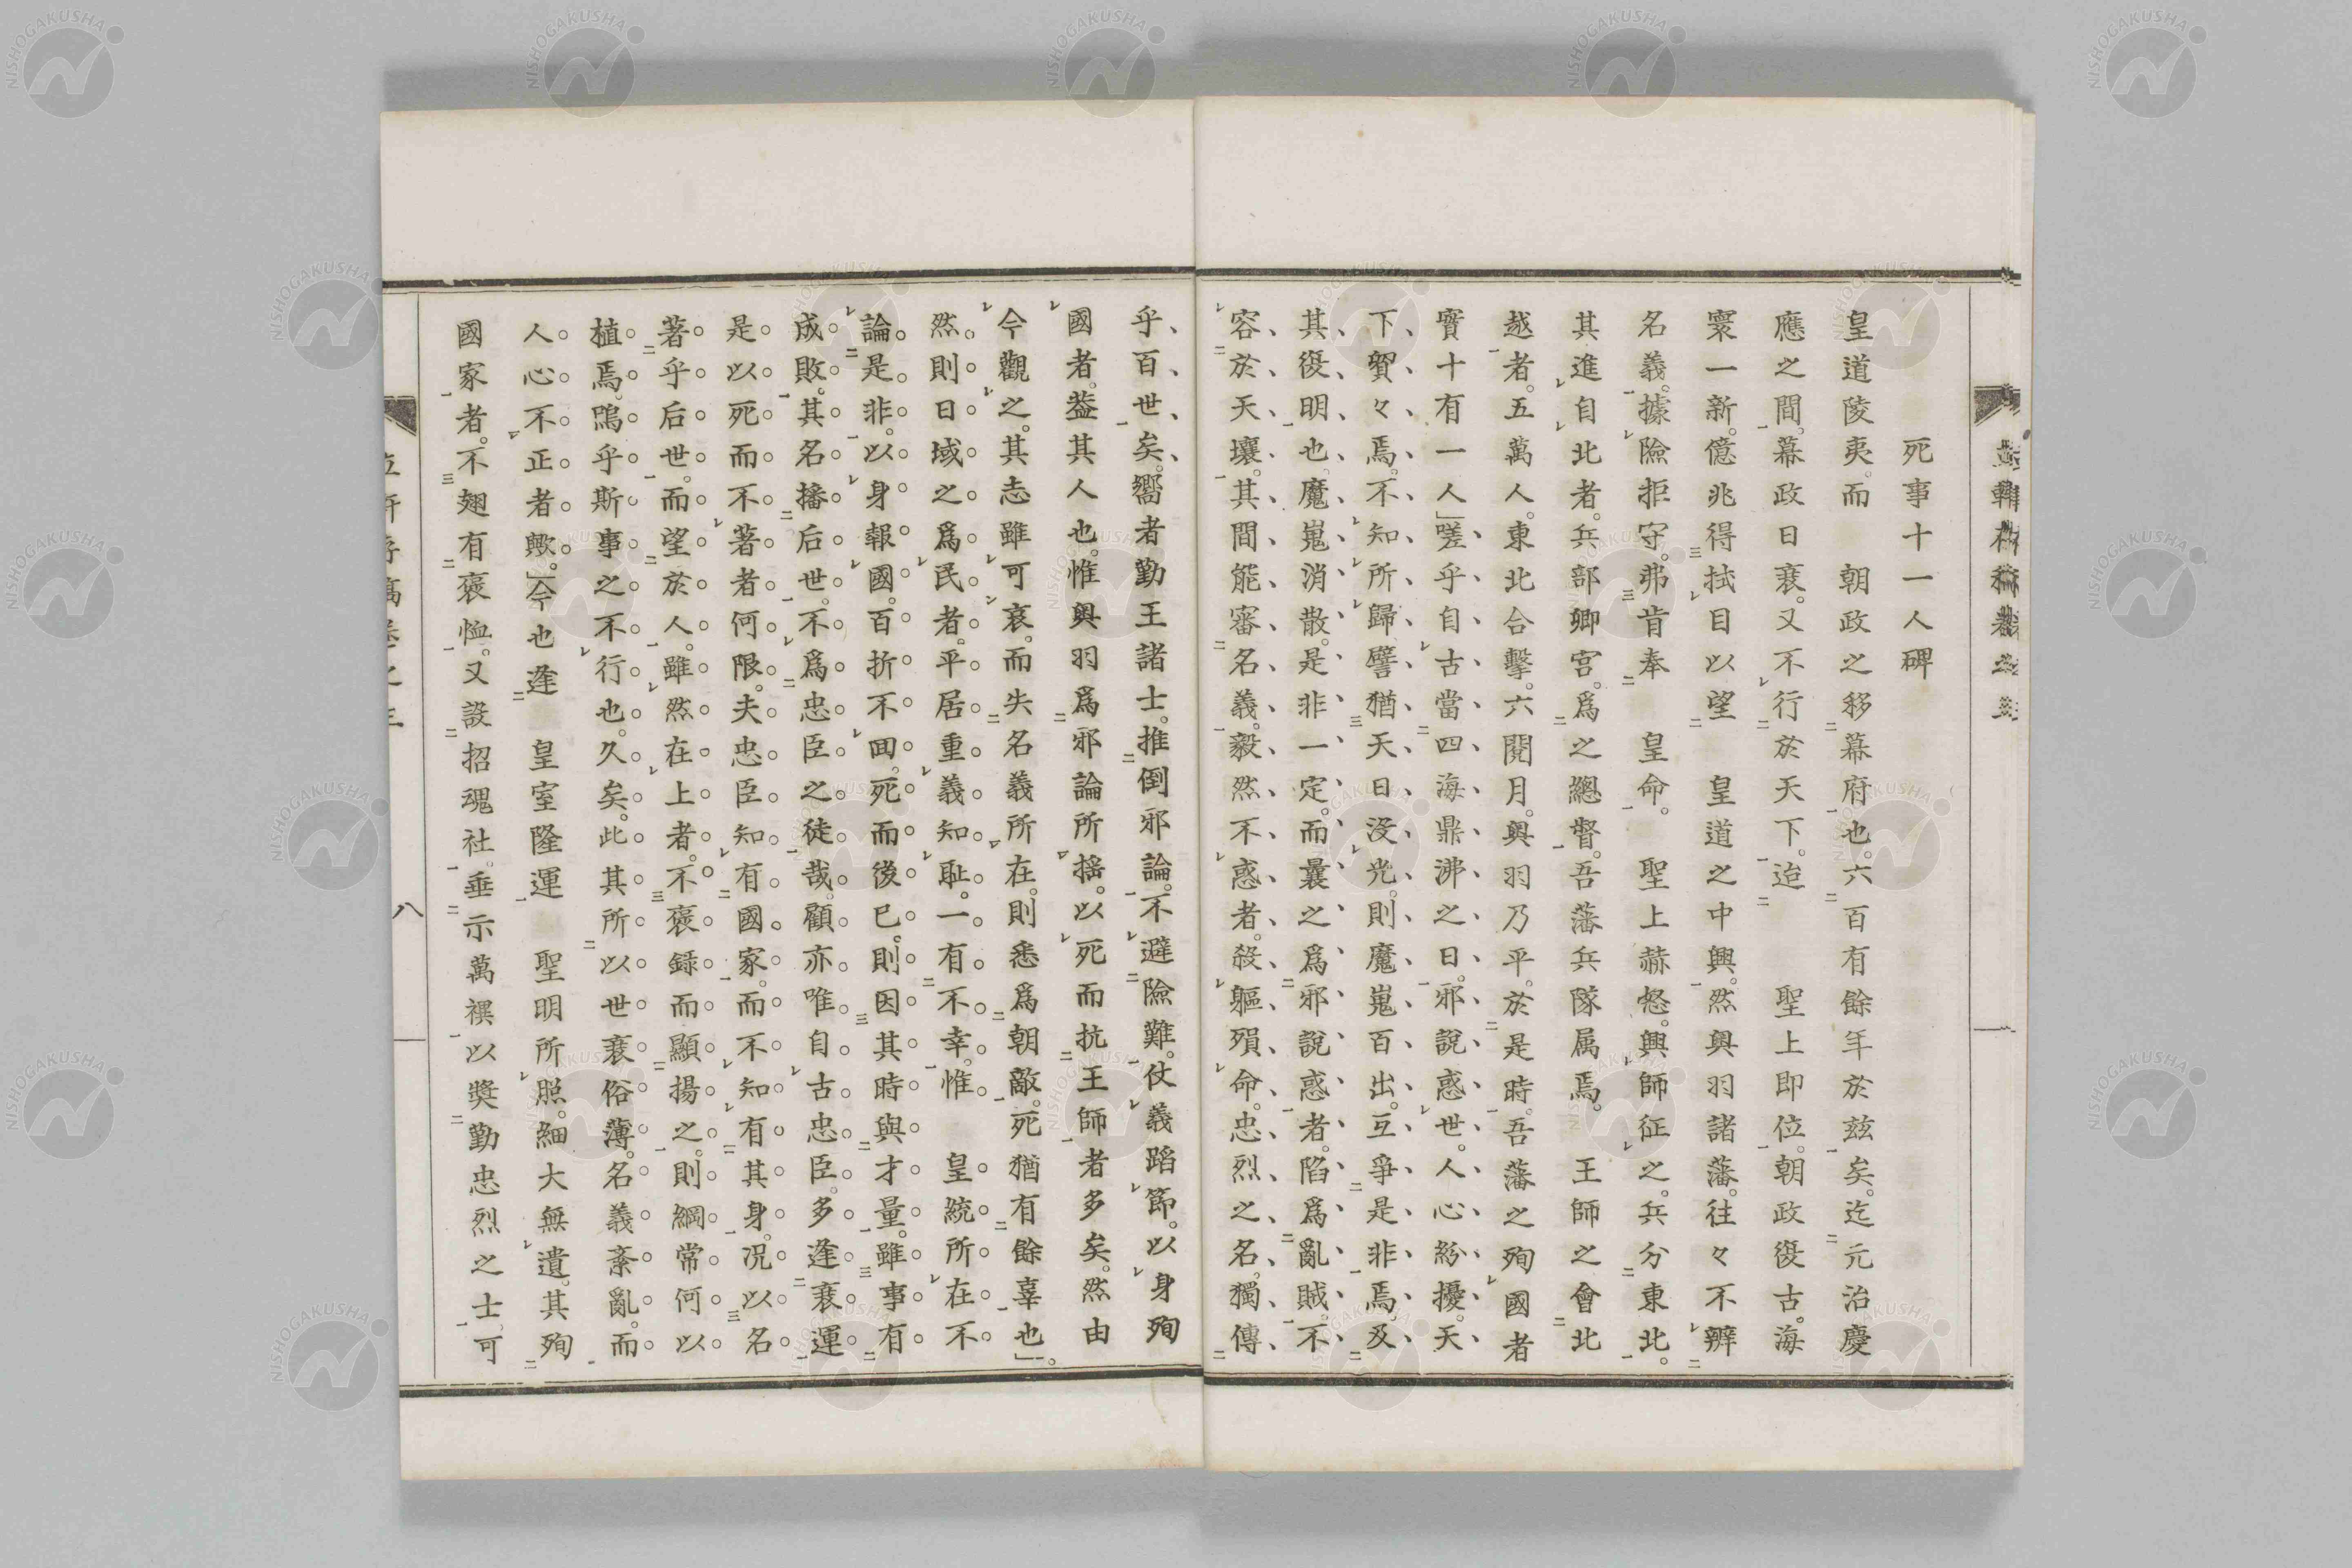 死事十一人碑
皇道陵夷。而　朝政之移幕府也。六百有餘年於茲矣。迄元治慶
應之間。幕政日衰。又不行於天下。迨　聖上即位。朝政復古。海
寰一新。億兆得拭目以望　皇道之中興。然奧羽諸藩。往々不辨
名義。據險拒守。弗肯奉　皇命。　聖上赫怒。興師征之。兵分東北。
其進自北者。兵部卿宮。爲之總督。吾藩兵隊属焉。　王師之會北
越者。五萬人。東北合擊。六閱月。奧羽乃平。於是時。吾藩之殉國者
實十有一人」嗟乎自古當四海鼎沸之日。邪說惑世。人心紛擾。天
下貿々焉。不知所歸。譬猶天日没光。則魔嵬百出。互爭是非焉。及
其復明也、魔嵬消散。是非一定。而曩之爲邪說惑者。陷爲亂賊。不
容於天壤。其間能審名義。毅然不惑者。殺軀殞命。忠烈之名。獨傳
乎百世矣。嚮者勤王諸士。推倒邪論。不避險難。仗義蹈節。以身殉
國者。葢其人也。惟奧羽爲邪論所搖。以死而抗王師者多矣。然由
今觀之。其志雖可哀。而失名義所在。則悉爲朝敵。死猶有餘辜也」。
然。則日域之爲民者。平居重義知耻。一有不幸。惟　皇統所在。不
論是非。以身報國。百折不回。死而後已。則因其時與才量。雖事有
成敗。其名播后世。不爲忠臣之徒哉。顧亦唯自古忠臣。多逢衰運
是以死而不著者何限。夫忠臣知有國家。而不知有其身。况以名
著乎后世。而望於人。雖然在上者。不褒録而顯揚之。則綱常何以
植焉。嗚乎斯事之不行也。久矣。此其所以世衰俗薄。名義紊亂。而
人心不正者歟。」今也逢　皇室隆運　聖明所照。細大無遺。其殉
國家者。不翅有褒恤。又設招魂社。垂示萬禩以奬勤忠烈之士。可
八